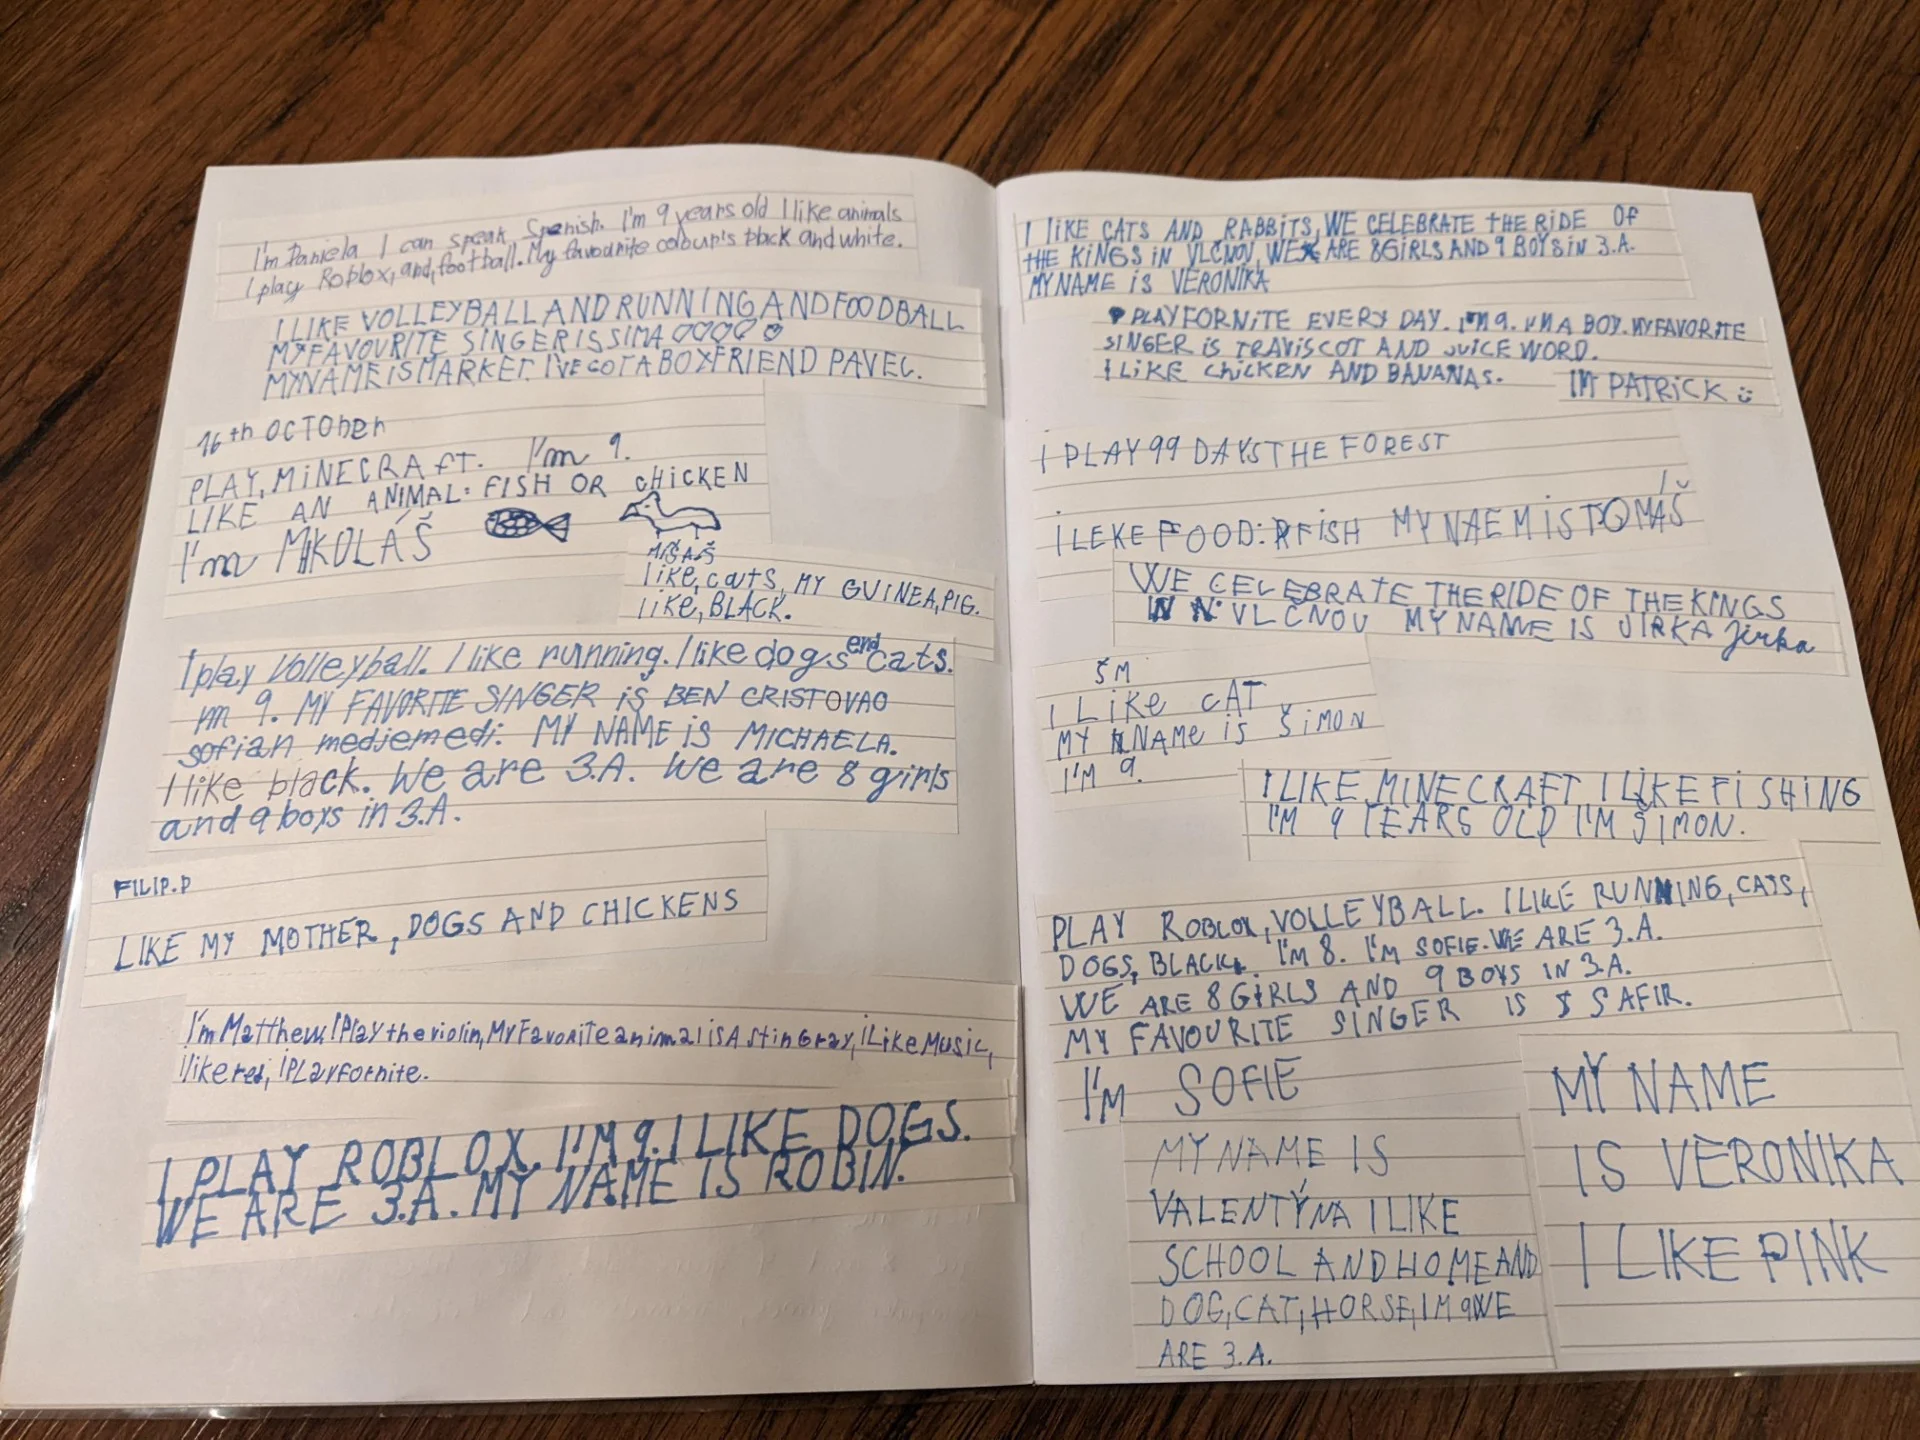 I'm Daniela I can speak Spenish. I'm 9 years old I like animals
I play Roblox, and, football. My favourite colour's black and white.
I LIKE VOLLEYBALL AND RUNNING AND FOODBALL
MY FAVOURITE SINGER IS SIMA ♡♡♡♡♡
MY NAME IS MARKET. I'VE GOT A BOYFRIEND PAVEL.
16th OCTOBER
PLAY, MINECRAFT. I'm 9.
LIKE AN ANIMAL: FISH OR CHICKEN
I'm MIKOLÁŠ
like, cats, MY GUINEA, PIG.
like, BLACK.
I play Volleyball. I like running. I like dogs end cats.
I'm 9. MY FAVORITE SINGER is BEN CRISTOVAO
sofian medjemedj. MY NAME is MICHAELA.
I like black. We are 3.A. We are 8 girls
and 9 boys in 3.A.
FILIP.P
LIKE MY MOTHER, DOGS AND CHICKENS
I'm Matthew, I Play the violin, My Favorite animal is A stinGray, i Like Music,
I like red, I PLay fornite.
I PLAY ROBLOX, I'M 9. I LIKE DOGS.
WE ARE 3.A. MY NAME IS ROBIN.
I LIKE CATS AND RABBITS, WE CELEBRATE tHE RIDE OF
tHE KINGS IN VLČNOV, WE ARE 8 GIRLS AND 9 BOYS IN 3.A.
MY NAME iS VERONIKA
PLAY FORNITE EVERY DAY. I'm 9. I'M A BOY. MY FAVORITE
SINGER iS TRAVISCOT AND JUICE WORD.
I LIKE CHICKEN AND BANANAS. I'M PATRICK
I PLAY 99 DAYS THE FOREST
I LEKE FOOD: FISH MY NAEM iS TOMÁŠ
WE CELEBRATE THE RIDE OF THE KINGS
IN VLČNOV MY NAME IS JIRKA Jirka
ŠM
I LiKe CAT
MY NAMe iS ŠiMON
I'M 9.
I LIKE MINECRAFT I LIKE FISHING
I'M 9 YEARS OLD I'M ŠIMON.
PLAY ROBLOX, VOLLEYBALL. I LIKE RUNNING, CATS,
DOGS, BLACK. I'M 8. I'M SOFIE. WE ARE 3.A.
WE ARE 8 GIRLS AND 9 BOYS IN 3.A.
MY FAVOURITE SINGER IS SAFIR.
I'M SOFIE
MY NAME IS
VALENTÝNA I LIKE
SCHOOL AND HOME AND
DOG, CAT, HORSE, IM 9 WE
ARE 3.A.
MY NAME
IS VERONIKA
I LIKE PINK